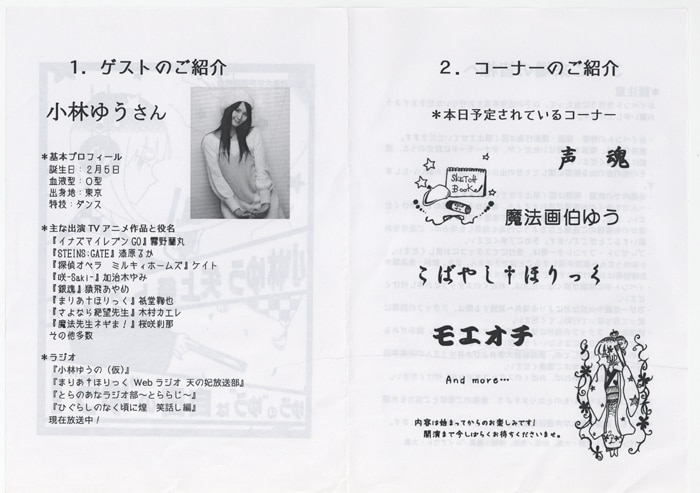 1. ゲストのご紹介
小林ゆうさん
＊基本プロフィール
誕生日：2月5日
血液型：O型
出身地：東京
特技：ダンス
＊主な出演TVアニメ作品と役名
『イナズマイレブンGO』霧野蘭丸
『STEINS;GATE』漆原るか
『探偵オペラ ミルキィホームズ』ケイト
『咲-Saki-』加治木ゆみ
『銀魂』猿飛あやめ
『まりあ†ほりっく』祇堂鞠也
『さよなら絶望先生』木村カエレ
『魔法先生ネギま！』桜咲刹那
その他多数
＊ラジオ
『小林ゆうの（仮）』
『まりあ†ほりっく Webラジオ 天の妃放送部』
『とらのあなラジオ部～とららじ～』
『ひぐらしのなく頃に煌 笑話し編』
現在放送中！
2. コーナーのご紹介
＊本日予定されているコーナー
声 魂
SKETCH
Book
魔法画伯ゆう
こばやし†ほりっく
モエオチ
And more…
内容は始まってからのお楽しみです！
開演まで今しばらくお待ちくださいませ。